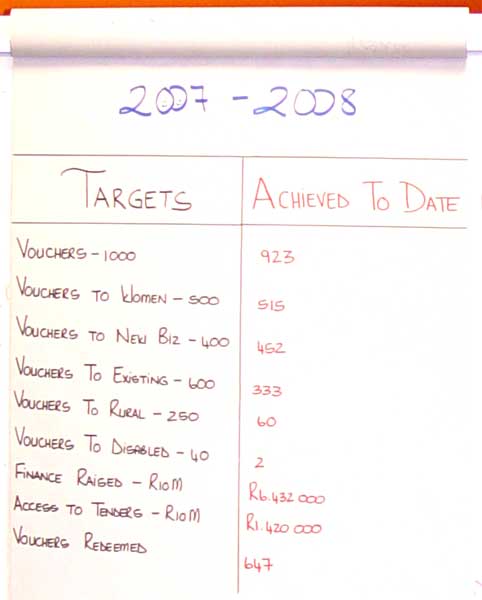 2007 - 2008
TARGETS ACHIEVED TO DATE
VOUCHERS - 1000 923
VOUCHERS TO WOMEN - 500 515
VOUCHERS TO NEW BIZ - 400 452
VOUCHERS TO EXISTING - 600 333
VOUCHERS TO RURAL - 250 60
VOUCHERS TO DISABLED - 40 2
FINANCE RAISED - R10M R6.432 000
ACCESS TO TENDERS - R10M R1.420 000
VOUCHERS REDEEMED 647